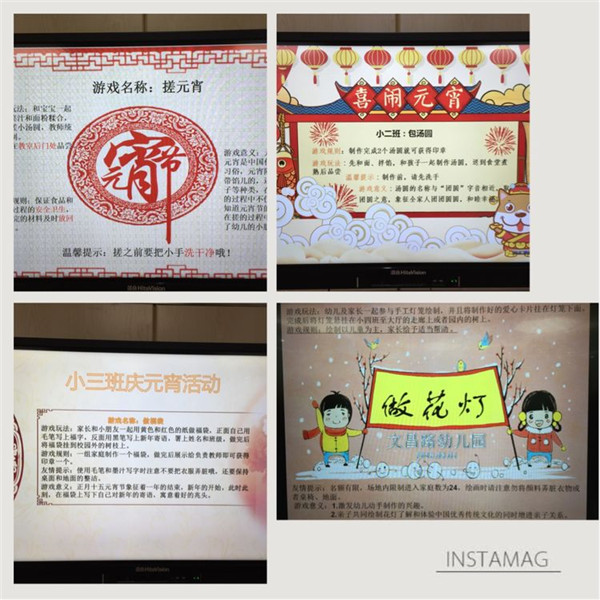 游戏名称：搓元宵
玩法：和宝宝一起
果汁和面粉糅合，
搓小汤圆、教师统
在教室后门处品尝
元宵节
游戏意义：
元宵是中国
习俗，元宵
带馅儿的，
子等种类，在
的过程中不
知道元宵节的
在搓的过程中
了幼儿的小
规则：保证食品和
过程的安全卫生，
完的材料及时放回
温馨提示：搓之前要把小手洗干净哦！
喜闹元宵
小二班：包汤圆
游戏规则：制作完成2个汤圆就可获得印章
游戏玩法：先和面、拌馅，和孩子一起制作汤圆，送到食堂煮
熟后品尝
温馨提示：制作前，请先洗手
游戏意义：汤圆的名称与“团圆”字音相近
团圆之意，象征全家人团团圆圆，和睦幸
小三班庆元宵活动
游戏名称：做福袋
游戏玩法：家长和小朋友一起用黄色和红色的纸做福袋，正面自己用
毛笔写上福字，反面用黑笔写上新年寄语，署上姓名和班级，做完后
将福袋挂到校园外的树枝上。
游戏规则：一组家庭制作一个福袋，做完后展示给负责教师即可获得
印章一个。
友情提示：使用毛笔和墨汁写字时注意不要把衣服弄脏哦，还要保持
桌面和地面的整洁。
游戏意义：正月十五元宵节象征着一年的结束，新年的开始；此时此
刻，在福袋上写下自己对新年的寄语，寓意着好的兆头。
游戏玩法：幼儿及家长一起参与手工灯笼绘制，并且将制作好的爱心卡片挂在灯笼下面。
完成后将灯笼悬挂在小四班至大厅的走廊上或者园内的树上。
游戏规则：绘制以儿童为主，家长给予适当帮助。
做花灯
文昌路幼儿园
友情提示：名额有限，场地内限制进入家庭数为24。绘画时请注意勿将颜料弄脏衣物或
者桌椅、地面。
游戏意义：1.激发幼儿动手制作的兴趣。
2.亲子共同绘制花灯了解和体验中国优秀传统文化的同时增进亲子关系。
INSTAMAG